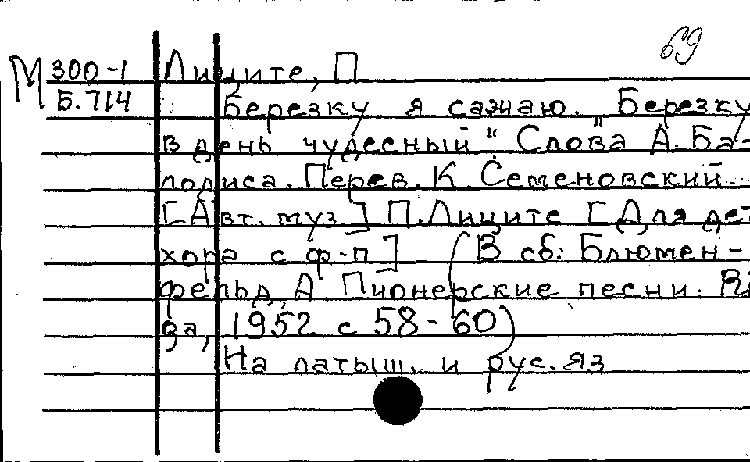 69
М 300-1 Лиците, П
Б.714 Березку я сажаю. "Березку
в день чудесный" Слова А. Ба-
лодиса. Перев. К Семеновский
[Авт. муз.] П. Лиците [Для дет
хора с ф-п] (В сб: Блюмен-
фельд, А Пионерские песни.
1952 с 58-60)
На латыш. и рус. яз